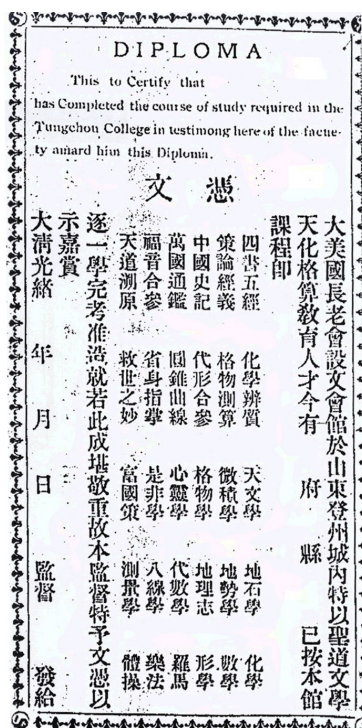 DIPLOMA
This to Certify that
has Completed the course of study required in the
Tungchou College in testimong here of the facue-
ty amard him this Diploma.
文憑
大美國長老會設文會館於山東登州城內特以聖道文學
天化格算敎育人才今有 府 縣 已按本館
課程卽
四書五經 化學辨質 天文學 地石學 化學
策論經義 格物測算 微積學 地勢學 數學
中國史記 代形合參 格物學 地理志 形學
萬國通鑑 圓錐曲線 心靈學 代數學 羅馬
福音合參 省身指掌 是非學 八線學 樂法
天道溯原 救世之妙 富國策 測量學 體操
逐一學完考准造就若此成堪敬重故本監督特予文憑以
示嘉賞
大淸光緖 年 月 日 監督 發給